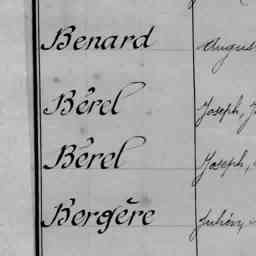 Benard Augus
Bêrel Joseph, J
Bêrel Joseph,
Bergêre Julien,